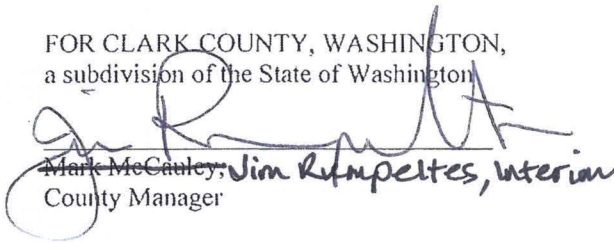 FOR CLARK COUNTY, WASHINGTON,
a subdivision of the State of Washington
Mark McCauley, Jim Rumpeltes, Interim
County Manager